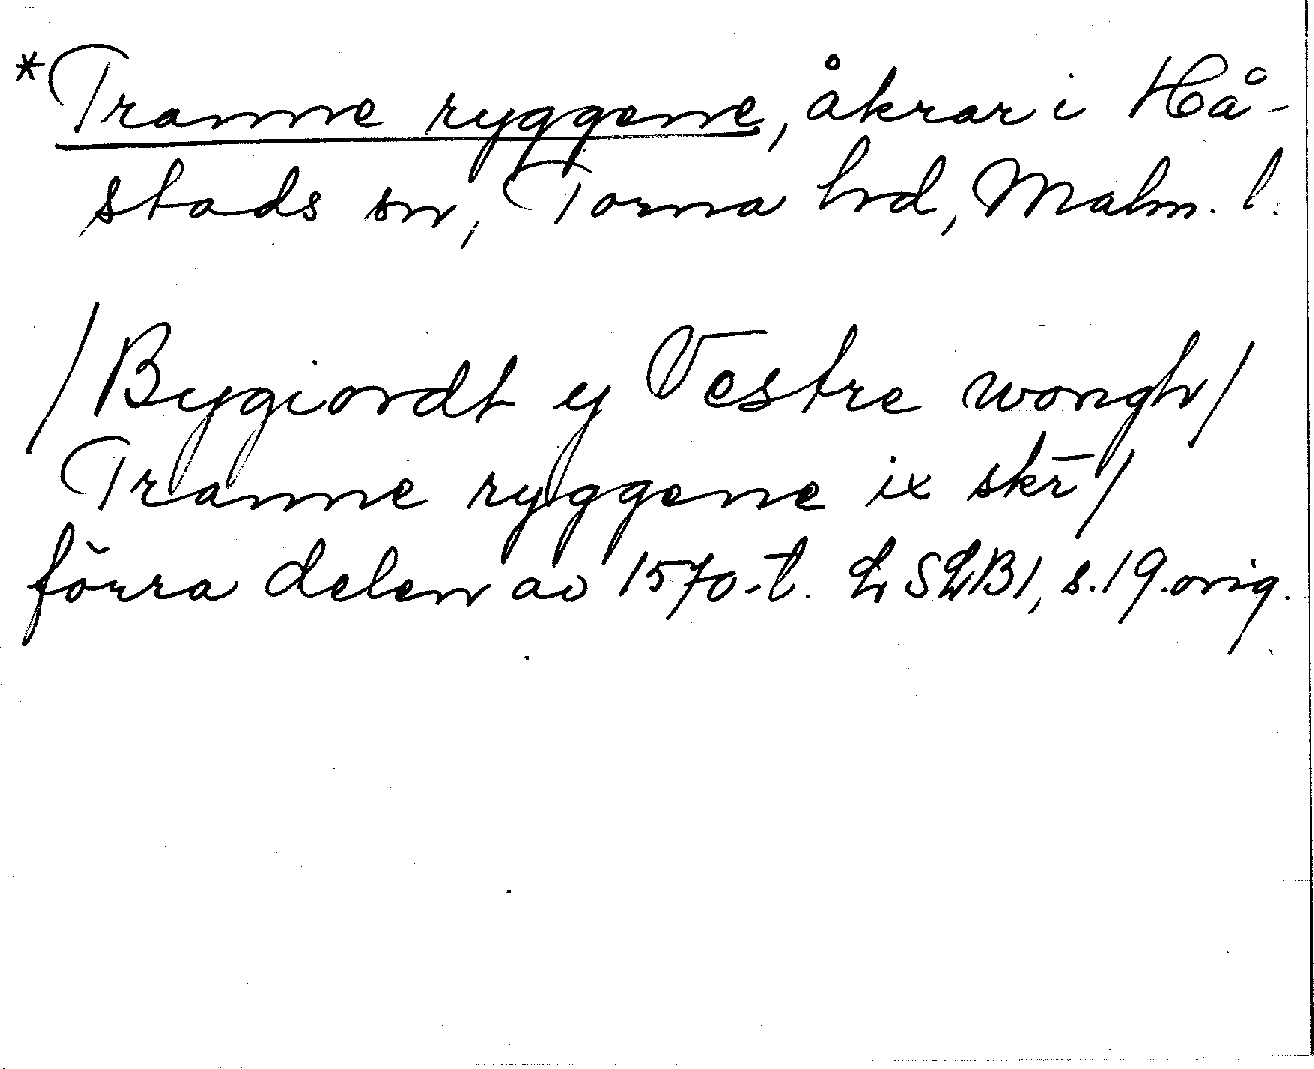 *Tranne ryggene, åkrar i Hå-
stads sn, Torna hd, Malm. l.
/Bygiordt y Vestre wongh/
Tranne ryggene ix skr̄/
förra delen av 1570-t. LSLB1, s.19.orig.